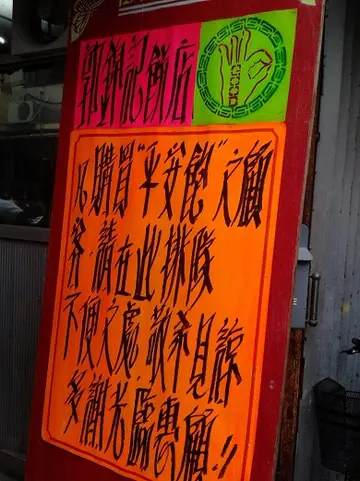 郭錦記餅店
凡購買“平安飽”之顧
客，請在此排隊
不便之處，敬希見諒
多謝光臨惠顧!!